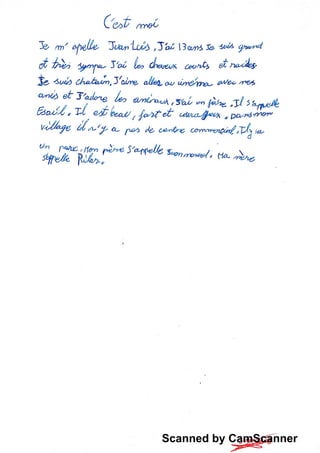 C'est moi
Je m'apelle Juan Luis, J'ai 13 ans Je suis grand
et très sympa J'ai les cheveux courts et raides
Je suis chatain, J'aime aller au cinéma avec mes
amis et J'adore les animaux, J'ai un frère. Il s'appelle
Il est beau, fort et courageux. Dans mon
village il n'y a pas de centre commercial. Il y a
un parc. Mon père s'appelle Ma mère
s'appelle Pilar.
Scanned by CamScanner